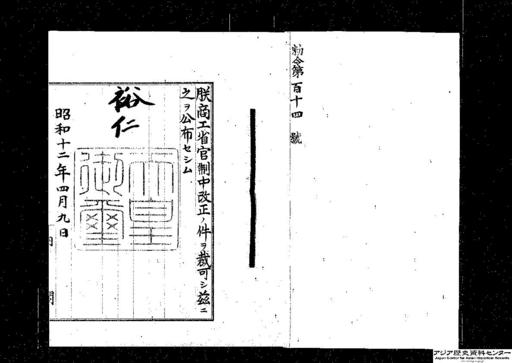 勅令第百十四號
朕商工省官制中改正ノ件ヲ裁可シ茲ニ
之ヲ公布セシム
裕仁
天皇御璽
昭和十二年四月九日
アジア歴史資料センター
Japan Center for Asian Historical Records